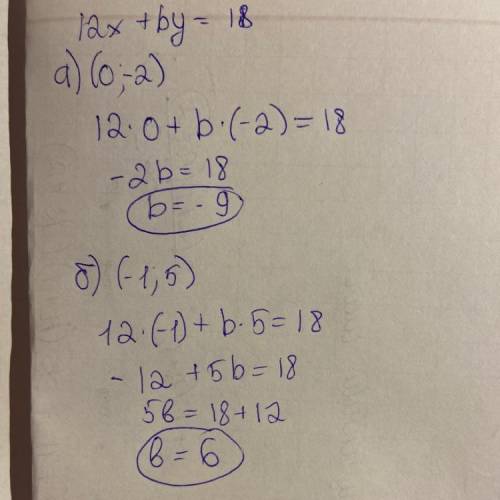 12x + by = 18
а) (0;-2)
12·0 + b·(-2) = 18
-2b = 18
b = - 9
б) (-1; 5)
12·(-1) + b·5 = 18
- 12 + 5b = 18
5b = 18 + 12
b = 6